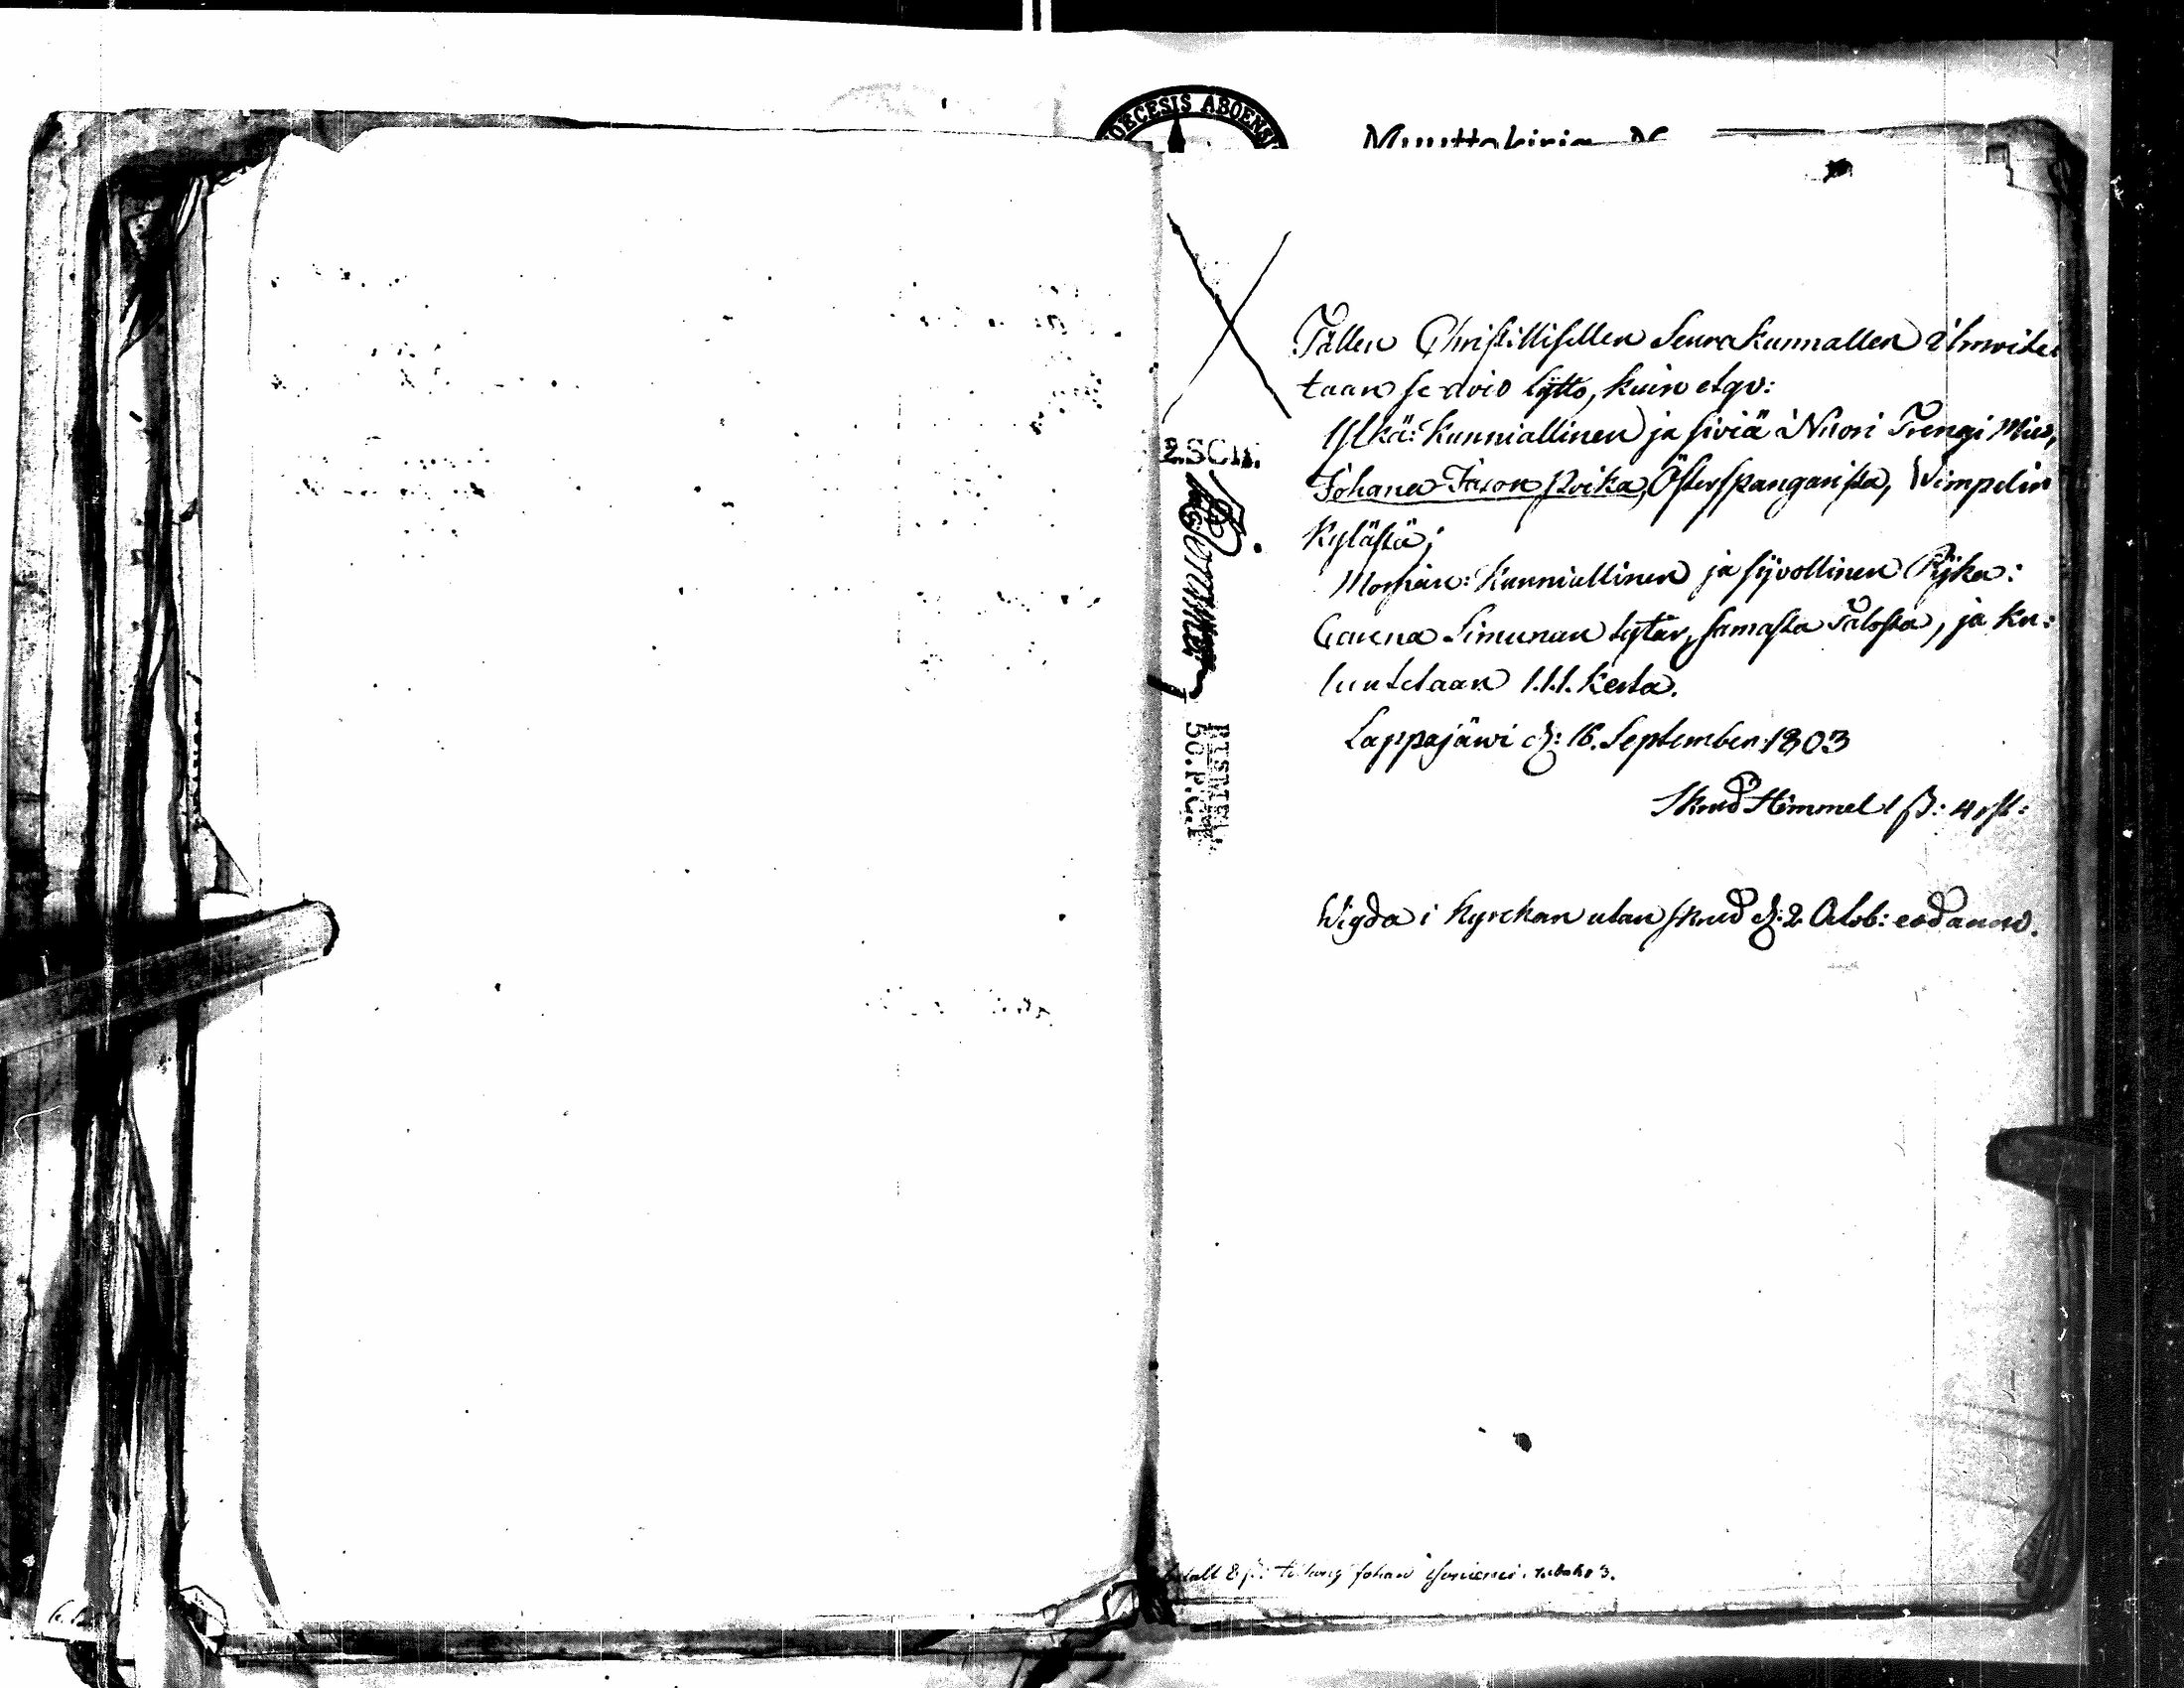 OECESIS ABOENSI
Muuttokirja N
Tällen Christillisellen Seurakunnallen ilmoite
taan se avio lijtto, kuin etgv:
Ylkä: Kunniallinen ja siviä Nuori Trengi Mies,
Johanes Jacon Poika, Österspanganista, Wimpelin
Kylästä;
Morsian: Kunniallinen ja sijvollinen Pijka:
Carena Simunan tytär, samasta Talosta, ja ku:
luutetaan 1.1.1. kerta.
Lappajärvi d: 16. September 1803
Skrud Himmel 1 ß: 4 rst:
Wigda i Kyrckan utan skrud d: 2 Octob: eod anno.
2.SCH.
50.P.C.